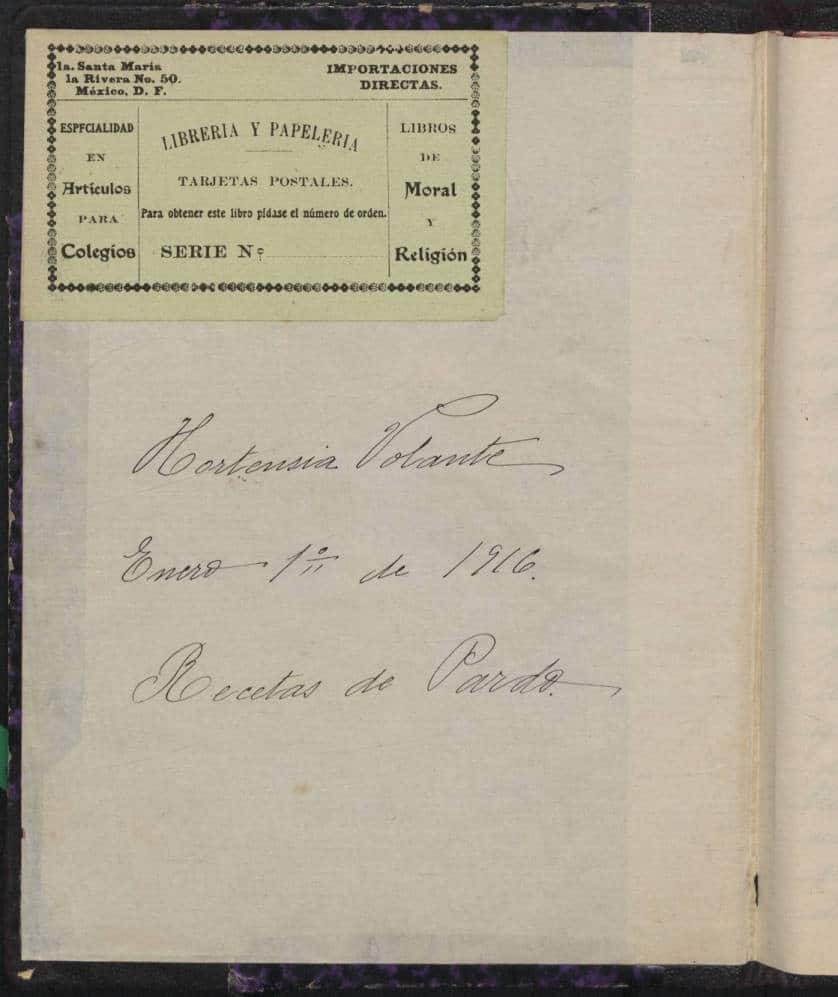 1a. Santa María
la Rivera No. 50.
México, D. F.
IMPORTACIONES
DIRECTAS.
ESPECIALIDAD
EN
Artículos
PARA
Colegios
LIBRERIA Y PAPELERIA
TARJETAS POSTALES.
Para obtener este libro pídase el número de orden.
SERIE No.
LIBROS
DE
Moral
Y
Religión
Hortensia Volante
Enero 1º de 1916.
Recetas de Pardo.